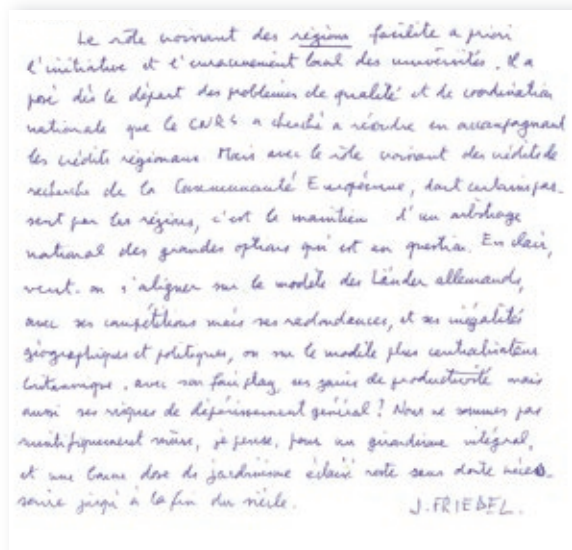 Le rôle croissant des régions facilite a priori
l'initiative et l'enracinement local des universités. Il a
posé dès le départ des problèmes de qualité et de coordination
nationale que le CNRS a cherché a résoudre en accompagnant
les crédits régionaux. Mais avec le rôle croissant des crédits de
recherche de la Communauté Européenne, dont certains pas-
sent par les régions, c'est le maintien d'un arbitrage
national des grandes options qui est en question. En clair,
veut-on s'aligner sur le modèle des Länder allemands,
avec ses compétitions mais ses redondances, et ses inégalités
géographiques et politiques, ou sur le modèle plus centralisateur
britannique, avec son fair play, ses gains de productivité mais
aussi ses risques de dépérissement général ? Nous ne sommes pas
scientifiquement mûrs, je pense, pour un girondisme intégral,
et une bonne dose de jardinisme éclairé reste sans doute néces-
saire jusqu'à la fin du siècle. J. FRIEDEL.